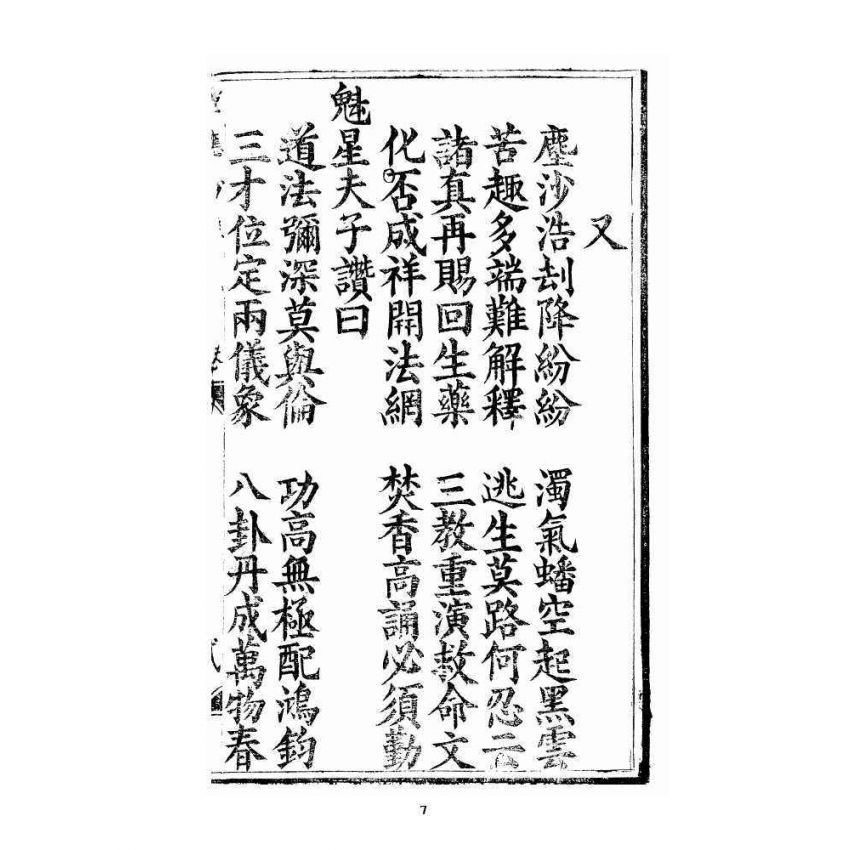 又
塵沙浩刦降紛紛 濁氣蟠空起黑雲
苦趣多端難解釋 逃生莫路何忍云
諸真再賜回生藥 三教重演救命文
化否成祥開法網 焚香高誦必須勤
魁星夫子讚曰
道法彌深莫與倫 功高無極配鴻鈞
三才位定兩儀象 八卦丹成萬物春
7